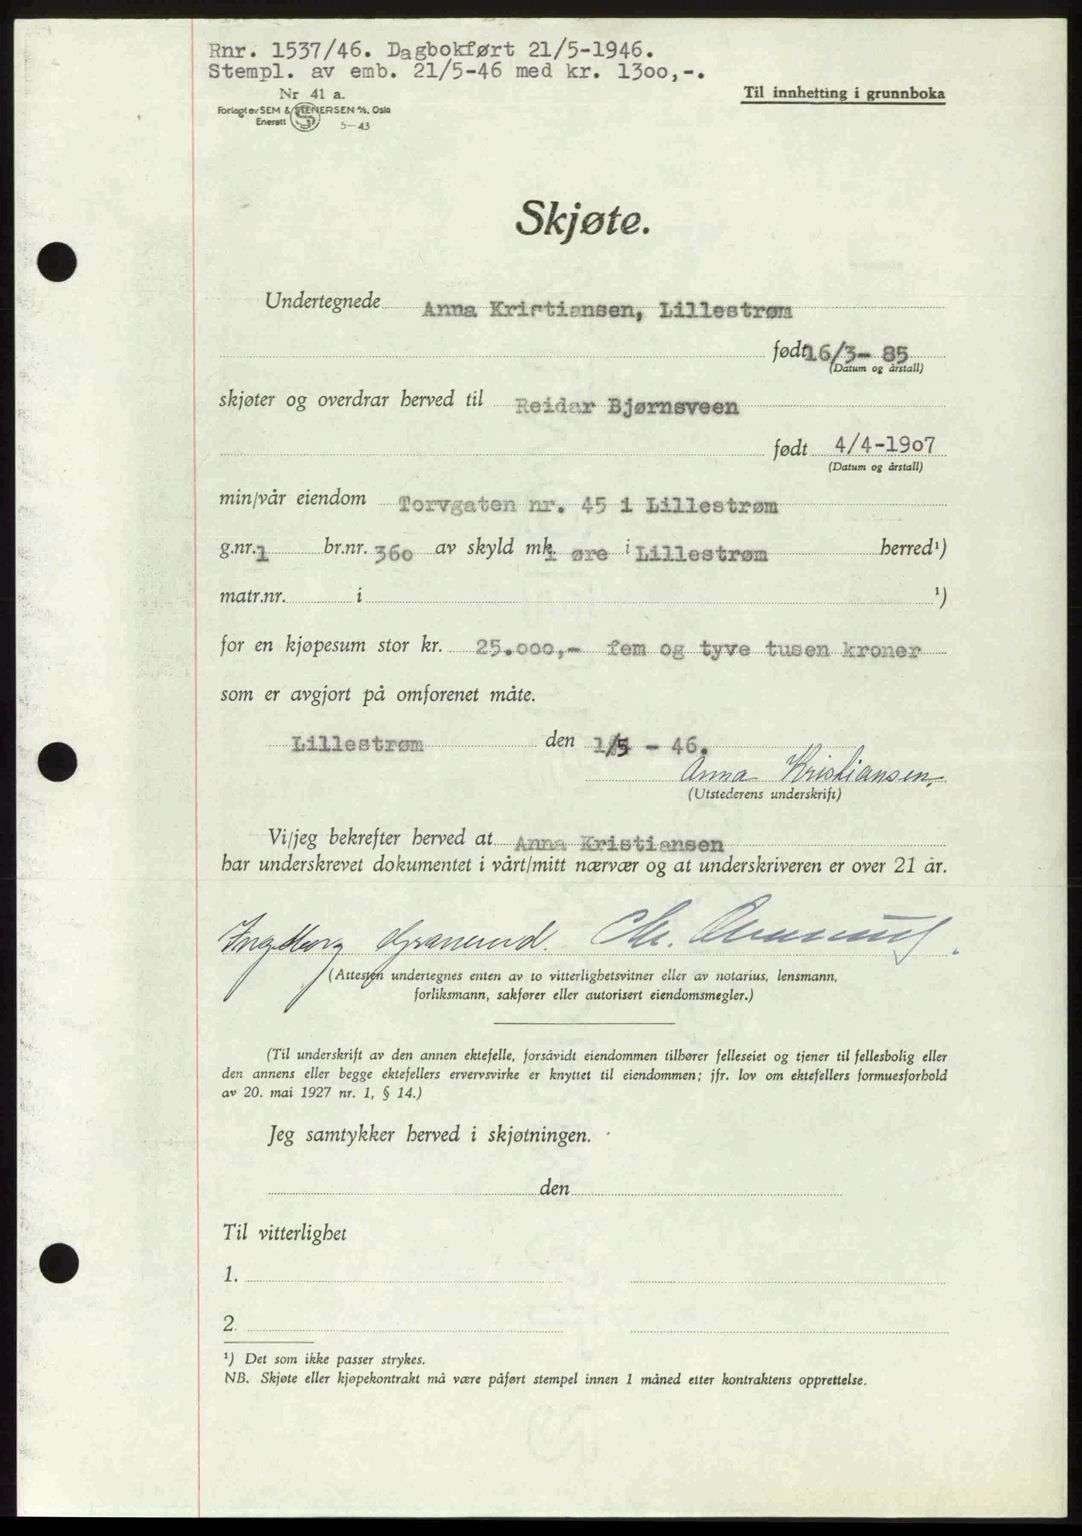 Rnr. 1537/46. Dagbokført 21/5-1946.
Stempl. av emb. 21/5-46 med kr. 13oo,-.
Nr 41 a.
Til innhetting i grunnboka
Forlagt av SEM & STENERSEN A/S, Oslo
Enerett 5-43
Skjøte.
Undertegnede Anna Kristiansen, Lillestrøm
født 16/3- 85
(Datum og årstall)
skjøter og overdrar herved til Reidar Bjørnsveen
født 4/4-19o7
(Datum og årstall)
min/vår eiendom Torvgaten nr. 45 i Lillestrøm
g.nr. 1 br.nr. 36o av skyld mk. 1 øre i Lillestrøm herred¹)
matr.nr. i ¹)
for en kjøpesum stor kr. 25.ooo,- fem og tyve tusen kroner
som er avgjort på omforenet måte.
Lillestrøm den 1/5 - 46.
Anna Kristiansen.
(Utstederens underskrift)
Vi/jeg bekrefter herved at Anna Kristiansen
har underskrevet dokumentet i vårt/mitt nærvær og at underskriveren er over 21 år.
Ingeborg Chr.
(Attesten undertegnes enten av to vitterlighetsvitner eller av notarius, lensmann,
forliksmann, sakfører eller autorisert eiendomsmegler.)
(Til underskrift av den annen ektefelle, forsåvidt eiendommen tilhører felleseiet og tjener til fellesbolig eller
den annens eller begge ektefellers ervervsvirke er knyttet til eiendommen; jfr. lov om ektefellers formuesforhold
av 20. mai 1927 nr. 1, § 14.)
Jeg samtykker herved i skjøtningen.
den
Til vitterlighet
1.
2.
¹) Det som ikke passer strykes.
NB. Skjøte eller kjøpekontrakt må være påført stempel innen 1 måned etter kontraktens opprettelse.